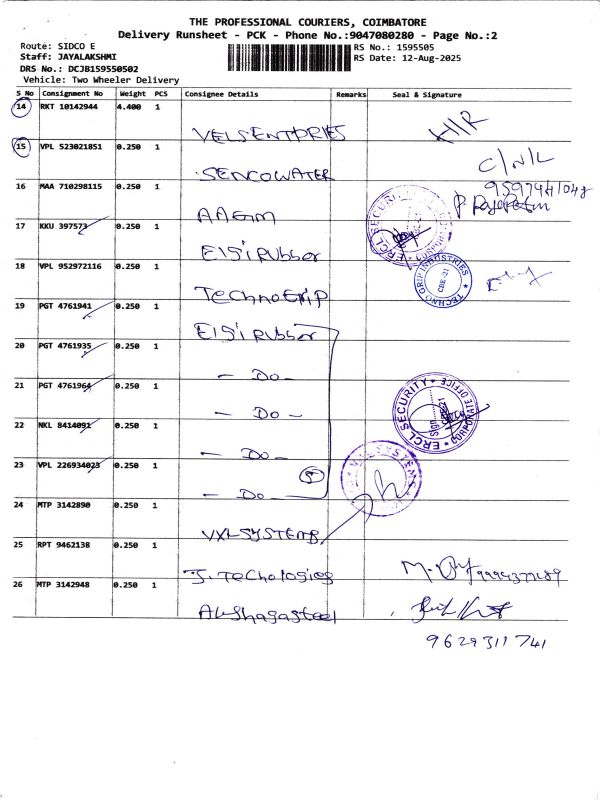 THE PROFESSIONAL COURIERS, COIMBATORE
Delivery Runsheet - PCK - Phone No.:9047080280 - Page No.:2
Route: SIDCO E
RS No.: 1595505
Staff: JAYALAKSHMI
RS Date: 12-Aug-2025
DRS No.: DCJB159550502
Vehicle: Two Wheeler Delivery
S No Consignment No Weight PCS Consignee Details Remarks Seal & Signature
14 RKT 10142944 4.400 1
VELSENTPRIES
15 VPL 523021851 0.250 1
C/N/L
SENCOWATER
16 MAA 710298115 0.250 1
AAEM
17 KKU 397573 0.250 1
ERCL SECURITY
Elgi Rubber
18 VPL 952972116 0.250 1
TECHNO GRIP INDUSTRIES
CBE-21
TechnoGrip
19 PGT 4761941 0.250 1
Elgi Rubber
20 PGT 4761935 0.250 1
- Do -
21 PGT 4761964 0.250 1
ERCL SECURITY
CORPORATE OFFICE
Sign
CBE-21
- Do -
22 NKL 8414091 0.250 1
- Do -
23 VPL 226934023 0.250 1
5
- Do -
24 MTP 3142890 0.250 1
VXL SYSTEMS
25 RPT 9462138 0.250 1
J. Techologies
26 MTP 3142948 0.250 1
Akshayasteel
9629311741